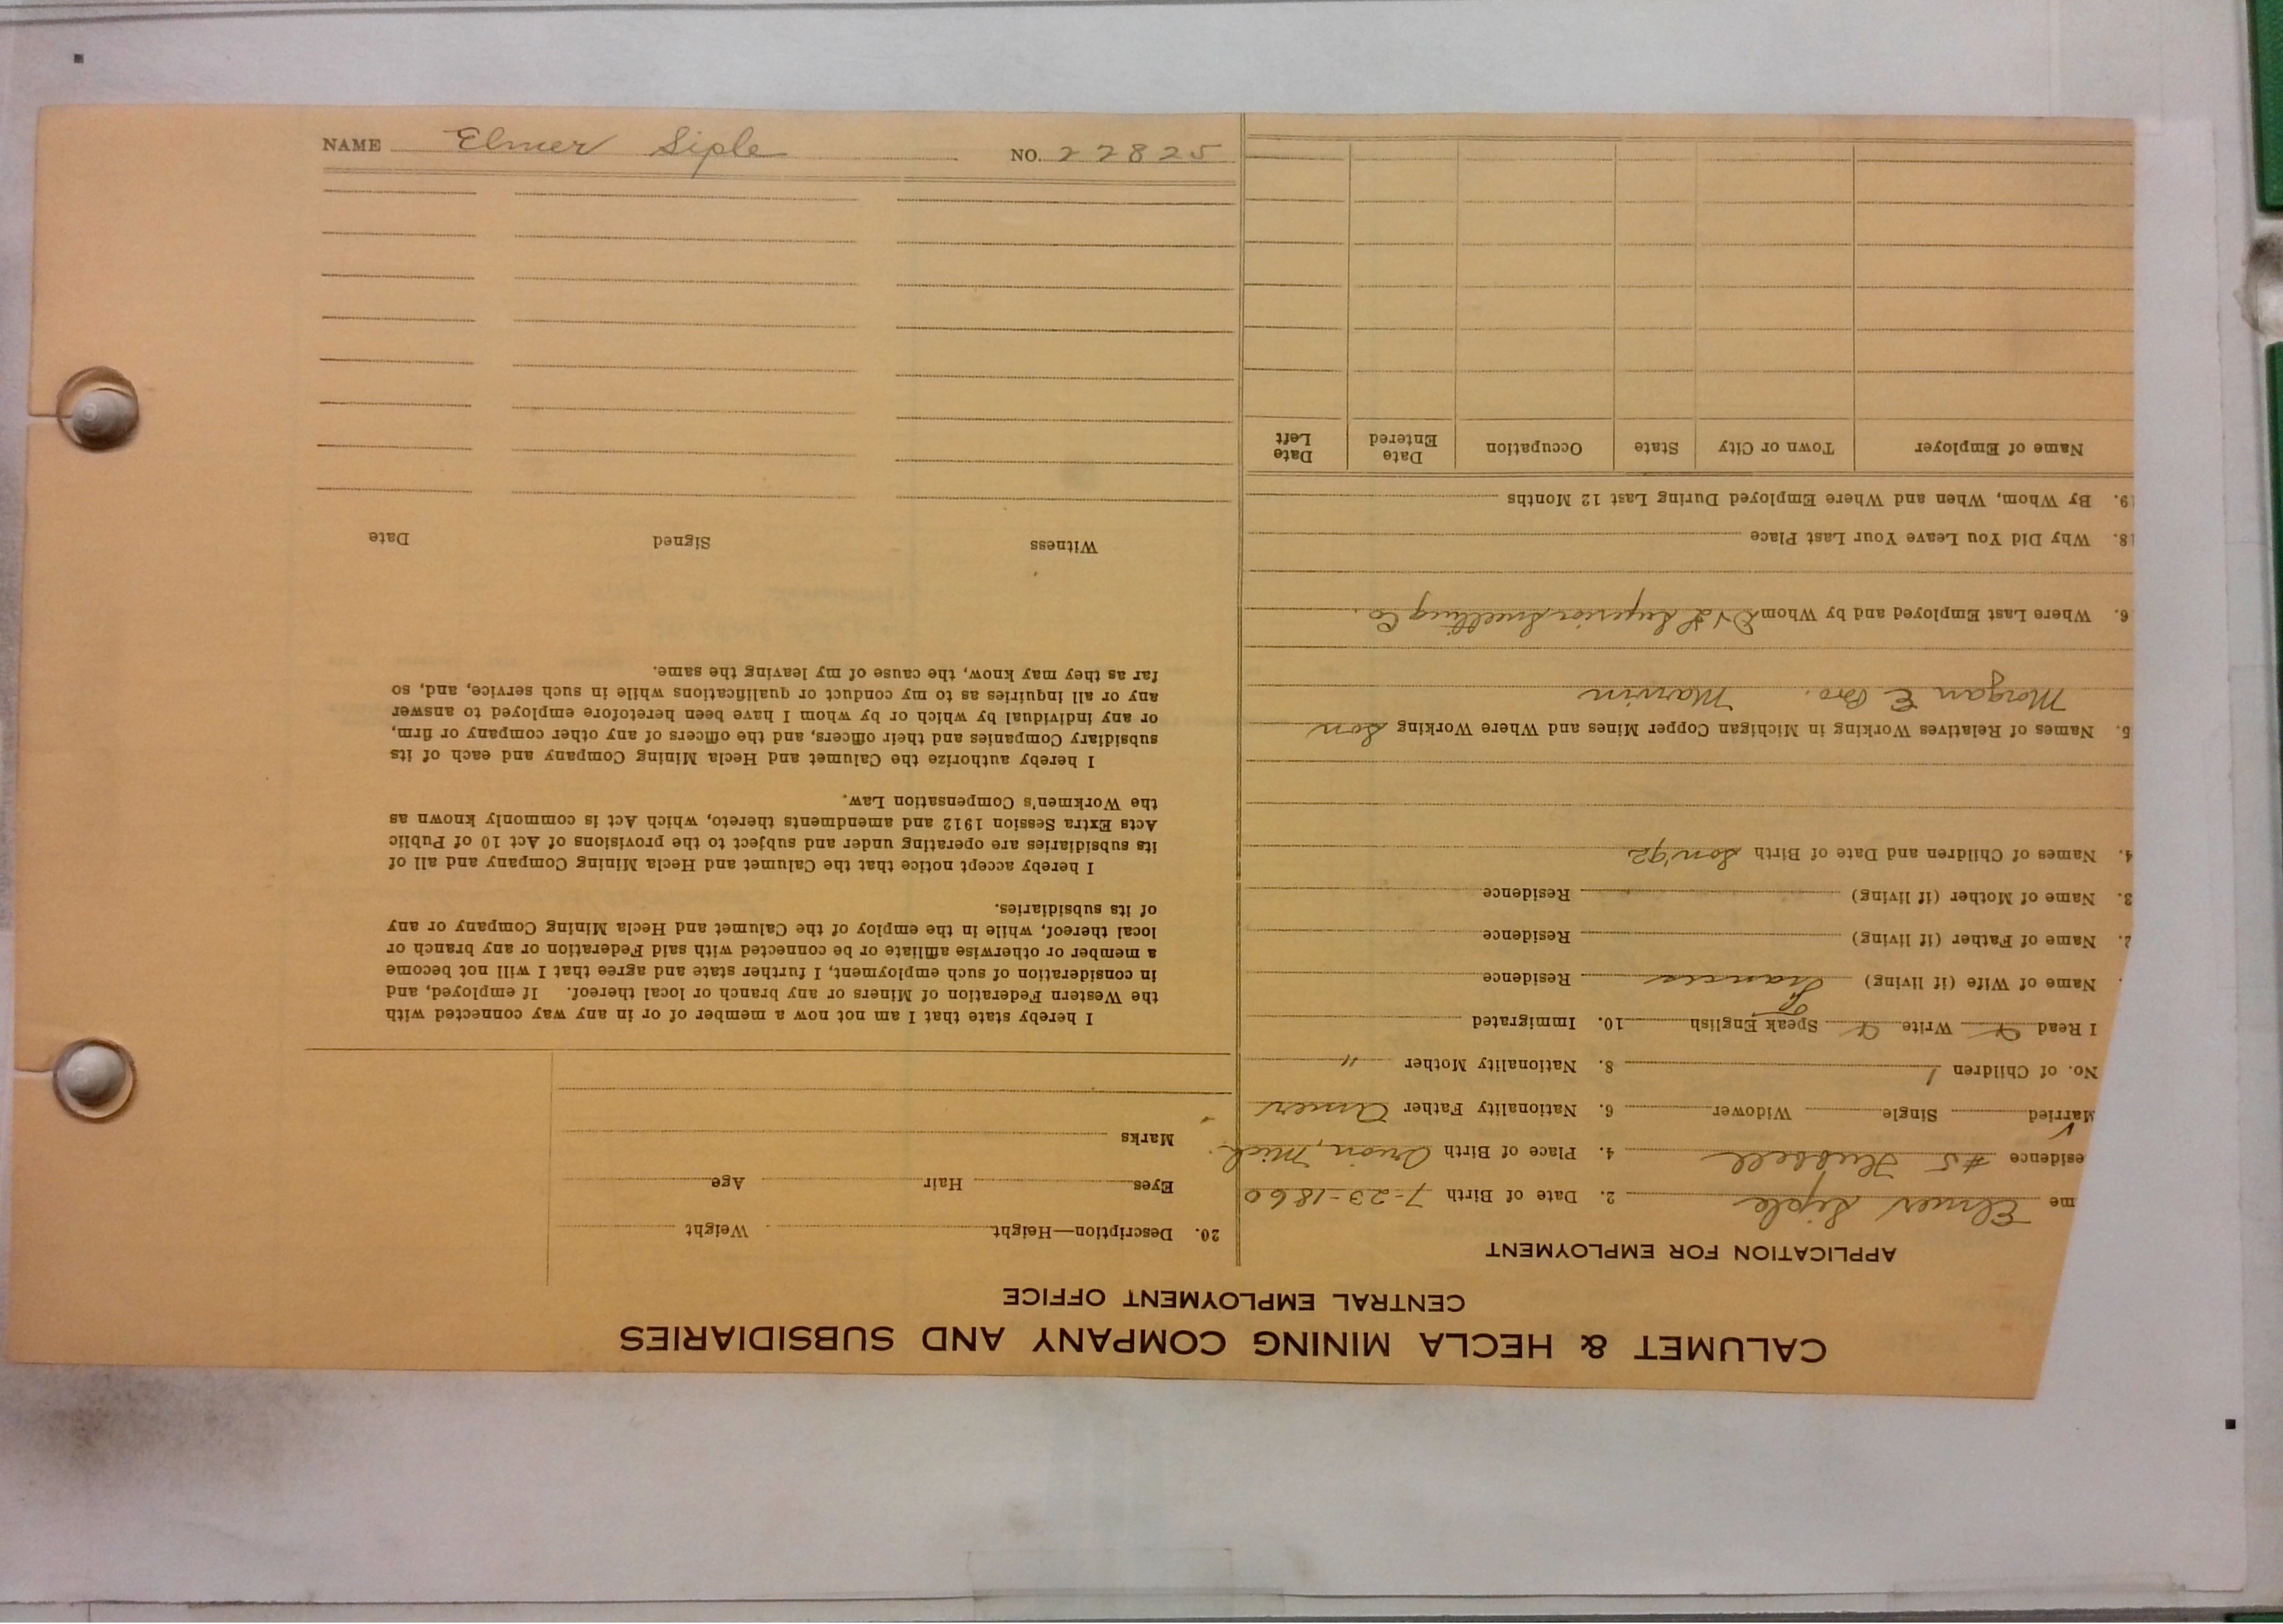 NAME Elmer Siple NO. 22825
CALUMET & HECLA MINING COMPANY AND SUBSIDIARIES
CENTRAL EMPLOYMENT OFFICE
APPLICATION FOR EMPLOYMENT
me Elmer Siple 2. Date of Birth 7-23-1860
esidence #5 Hubbell 4. Place of Birth Orion, Mich.
Married ✓ Single Widower 6. Nationality Father Amer
No. of Children 1 8. Nationality Mother "
I Read Write Speak English 10. Immigrated
Name of Wife (if living) Francis Residence
2. Name of Father (if living) Residence
3. Name of Mother (if living) Residence
4. Names of Children and Date of Birth Son '92
5. Names of Relatives Working in Michigan Copper Mines and Where Working Son
Morgan E Bro. Marvin
6. Where Last Employed and by Whom D & L Superior Smelting Co.
18. Why Did You Leave Your Last Place
19. By Whom, When and Where Employed During Last 12 Months
Name of Employer Town or City State Occupation Date Entered Date Left
20. Description—Height Weight
Eyes Hair Age
Marks
I hereby state that I am not now a member of or in any way connected with
the Western Federation of Miners or any branch or local thereof. If employed, and
in consideration of such employment, I further state and agree that I will not become
a member or otherwise affiliate or be connected with said Federation or any branch or
local thereof, while in the employ of the Calumet and Hecla Mining Company or any
of its subsidiaries.
I hereby accept notice that the Calumet and Hecla Mining Company and all of
its subsidiaries are operating under and subject to the provisions of Act 10 of Public
Acts Extra Session 1912 and amendments thereto, which Act is commonly known as
the Workmen's Compensation Law.
I hereby authorize the Calumet and Hecla Mining Company and each of its
subsidiary Companies and their officers, and the officers of any other company or firm,
or any individual by which or by whom I have been heretofore employed to answer
any or all inquiries as to my conduct or qualifications while in such service, and, so
far as they may know, the cause of my leaving the same.
Witness Signed Date